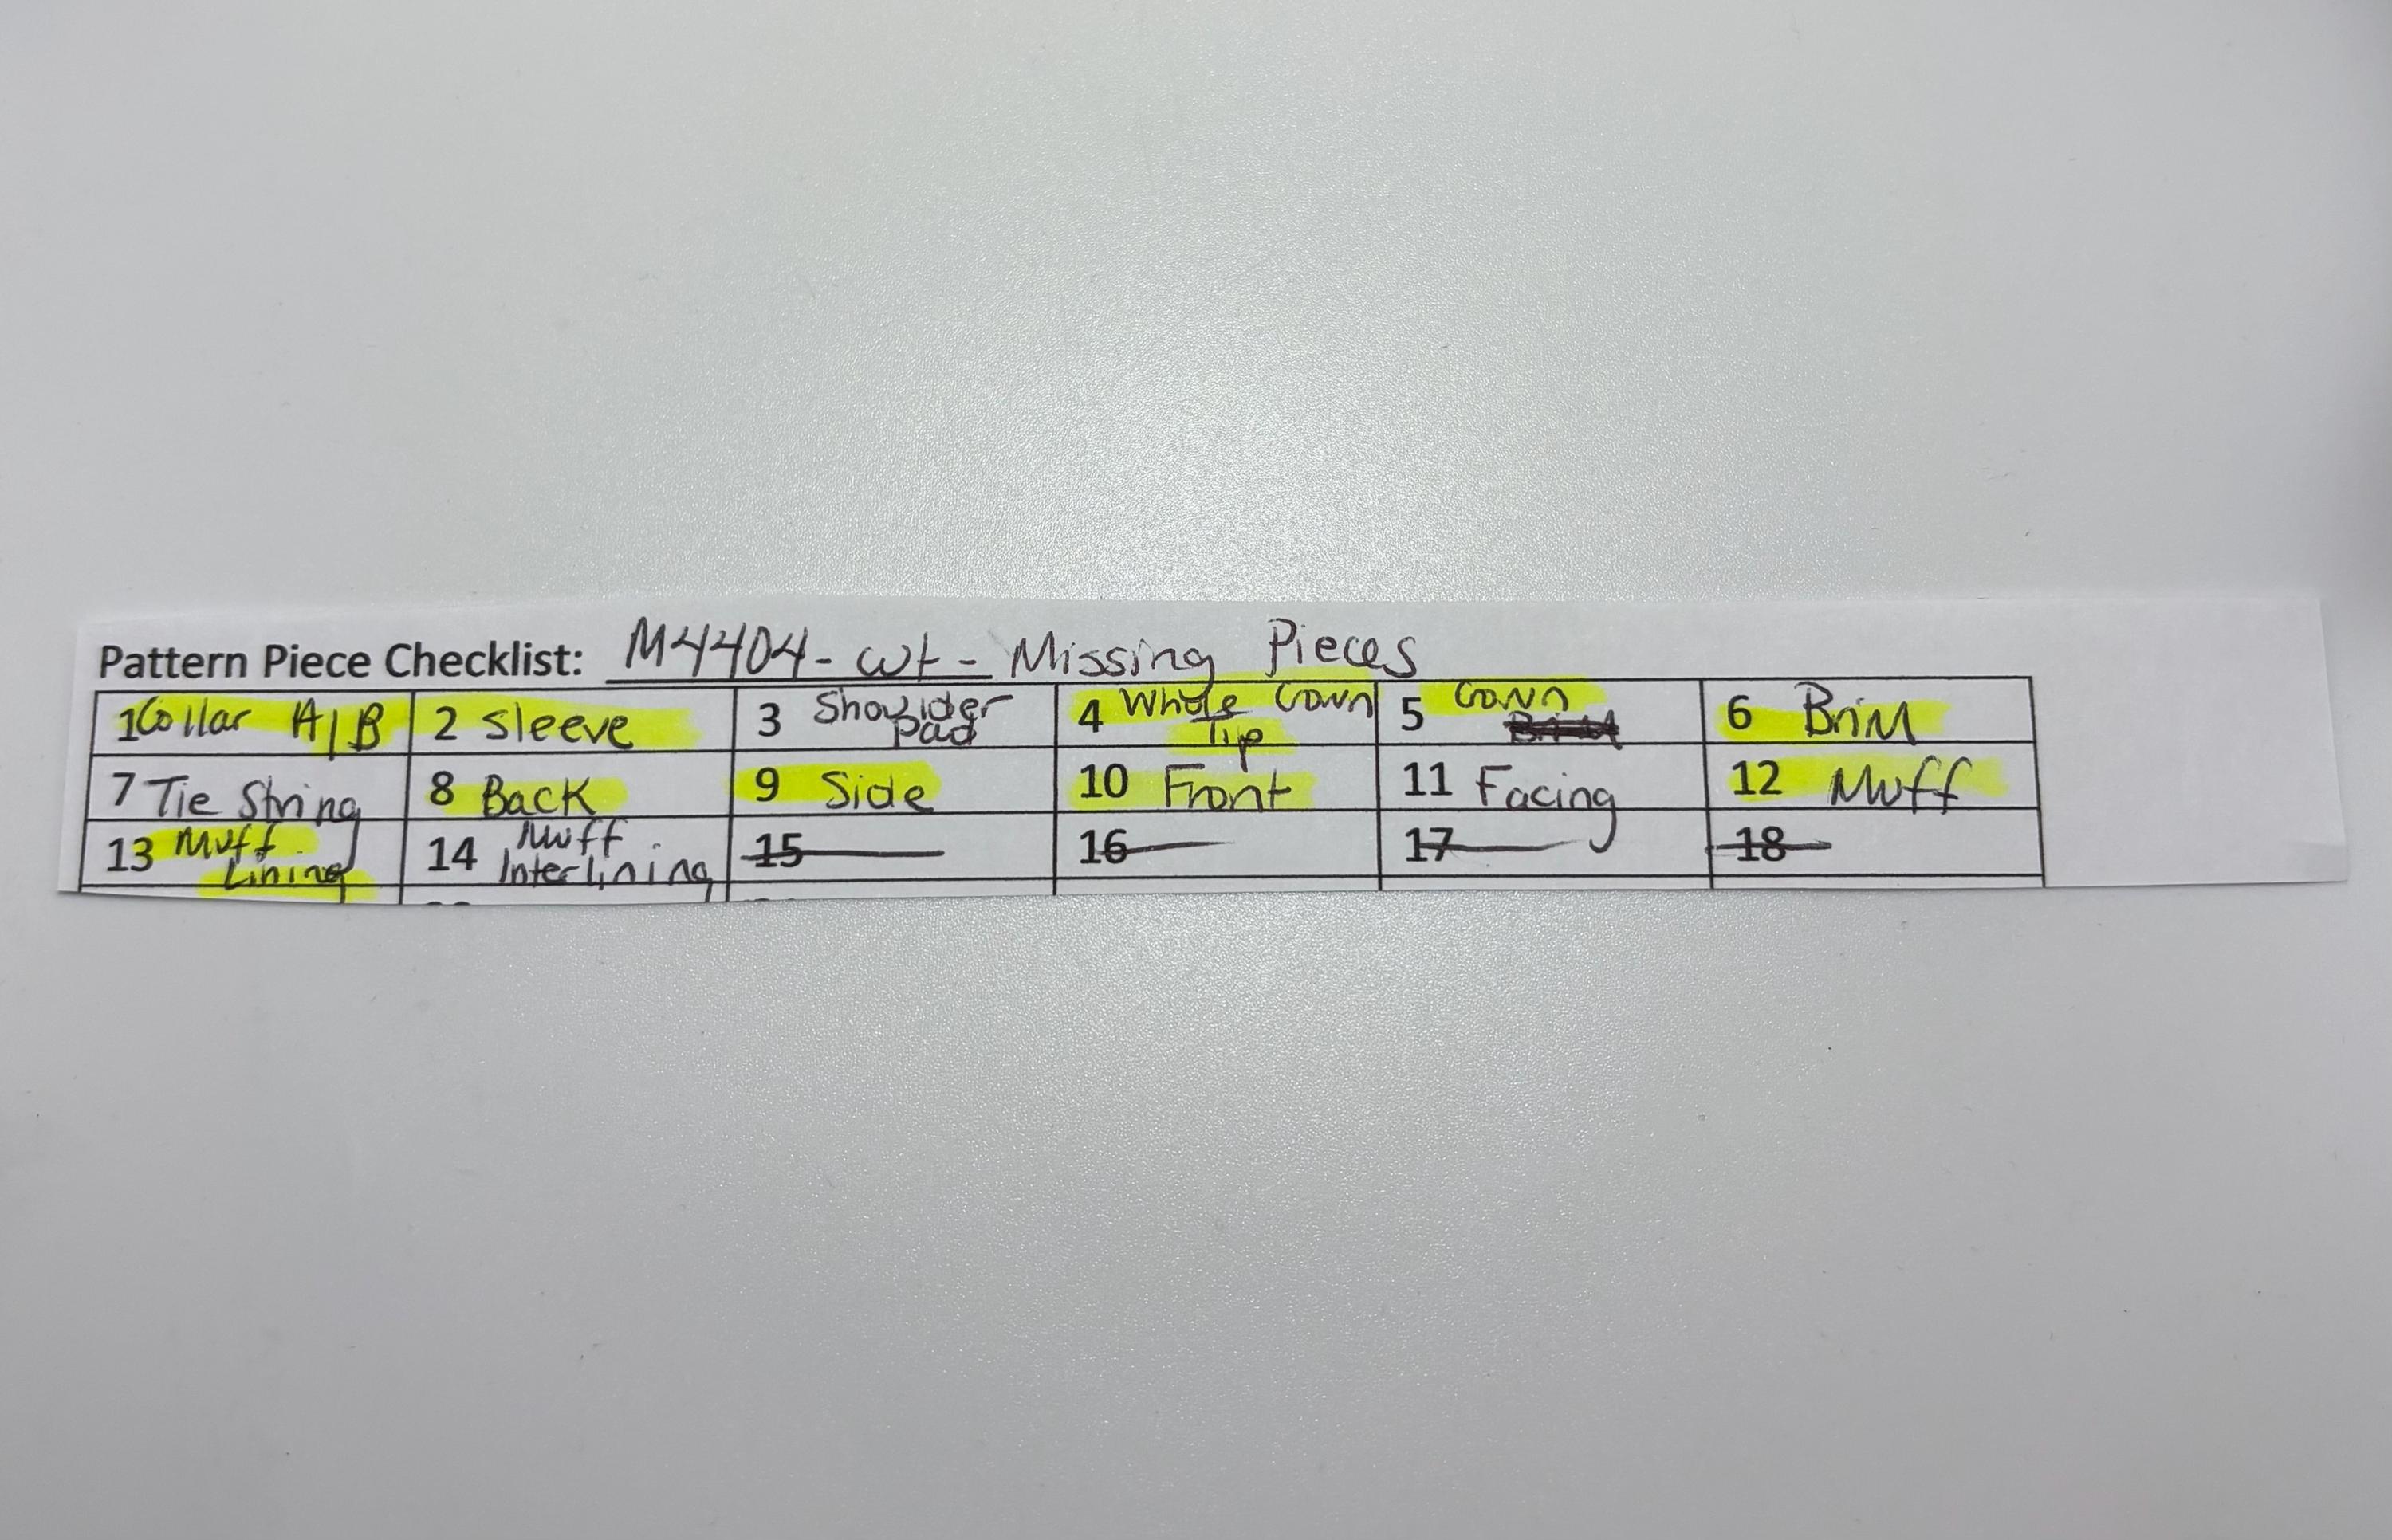 Pattern Piece Checklist: M4404 - wt - Missing Pieces
1 Collar A/B 2 Sleeve 3 Shoulder Pad 4 Whole Town Tip 5 6 Brim
7 Tie String 8 Back 9 Side 10 Front 11 Facing 12 Muff
13 Muff Lining 14 Muff Interlining 15 16 17 18